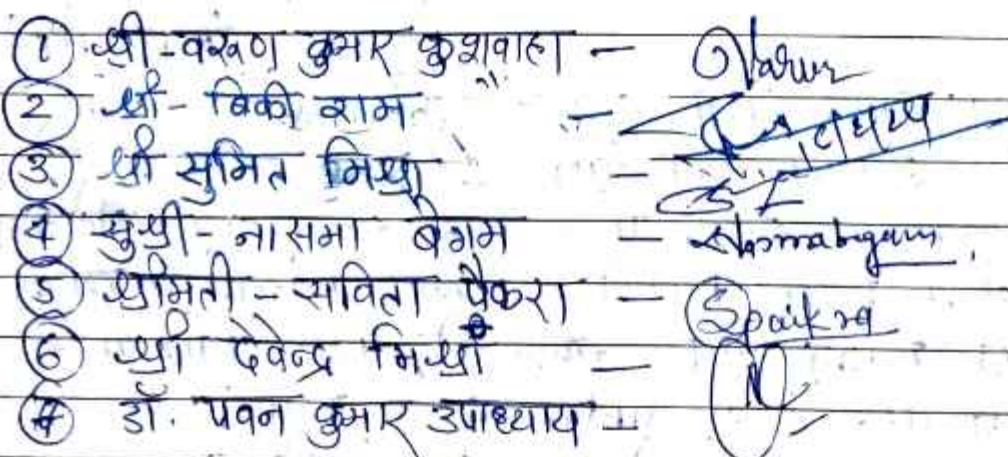 ① श्री - वरूण कुमार कुशवाहा - Varun
② श्री - विकी राम -
③ श्री सुमित मिश्रा -
④ सुश्री - नासमा बेगम - Nasmabegum
⑤ श्रीमती - सविता पैकरा - Spaikra
⑥ श्री देवेन्द्र मिश्रा -
⑦ डॉ. पवन कुमार उपाध्याय -